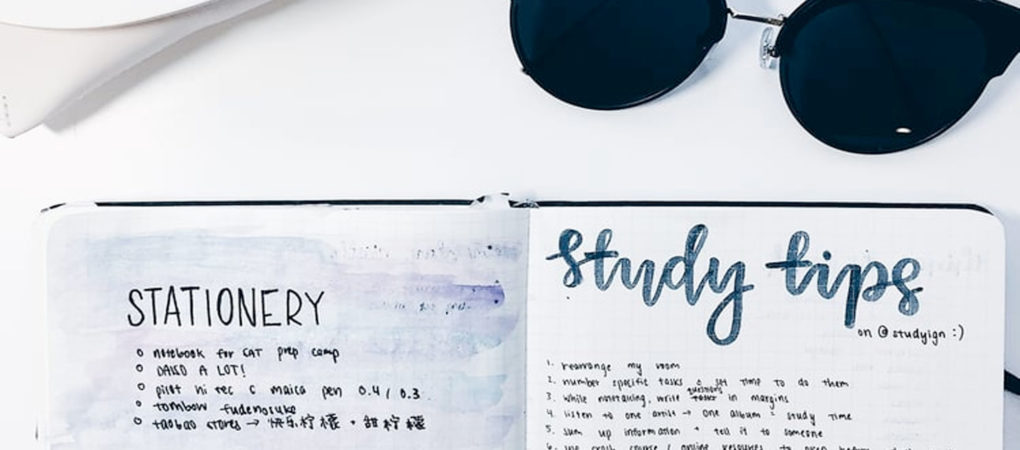 STATIONERY
notebook for CAT prep camp
DAISO A LOT!
pilot hi tec c maica pen 0.4 / 0.3
tombow fudenosuke
taobao stores → 快乐柠檬 + 甜柠檬
study tips
on @studyign :)
1. rearrange my room
2. number specific tasks & set time to do them
3. while notetaking, write questions in margins
4. listen to one artist → one album = study time
5. sum up information + tell it to someone
6. use crash course / online resources to